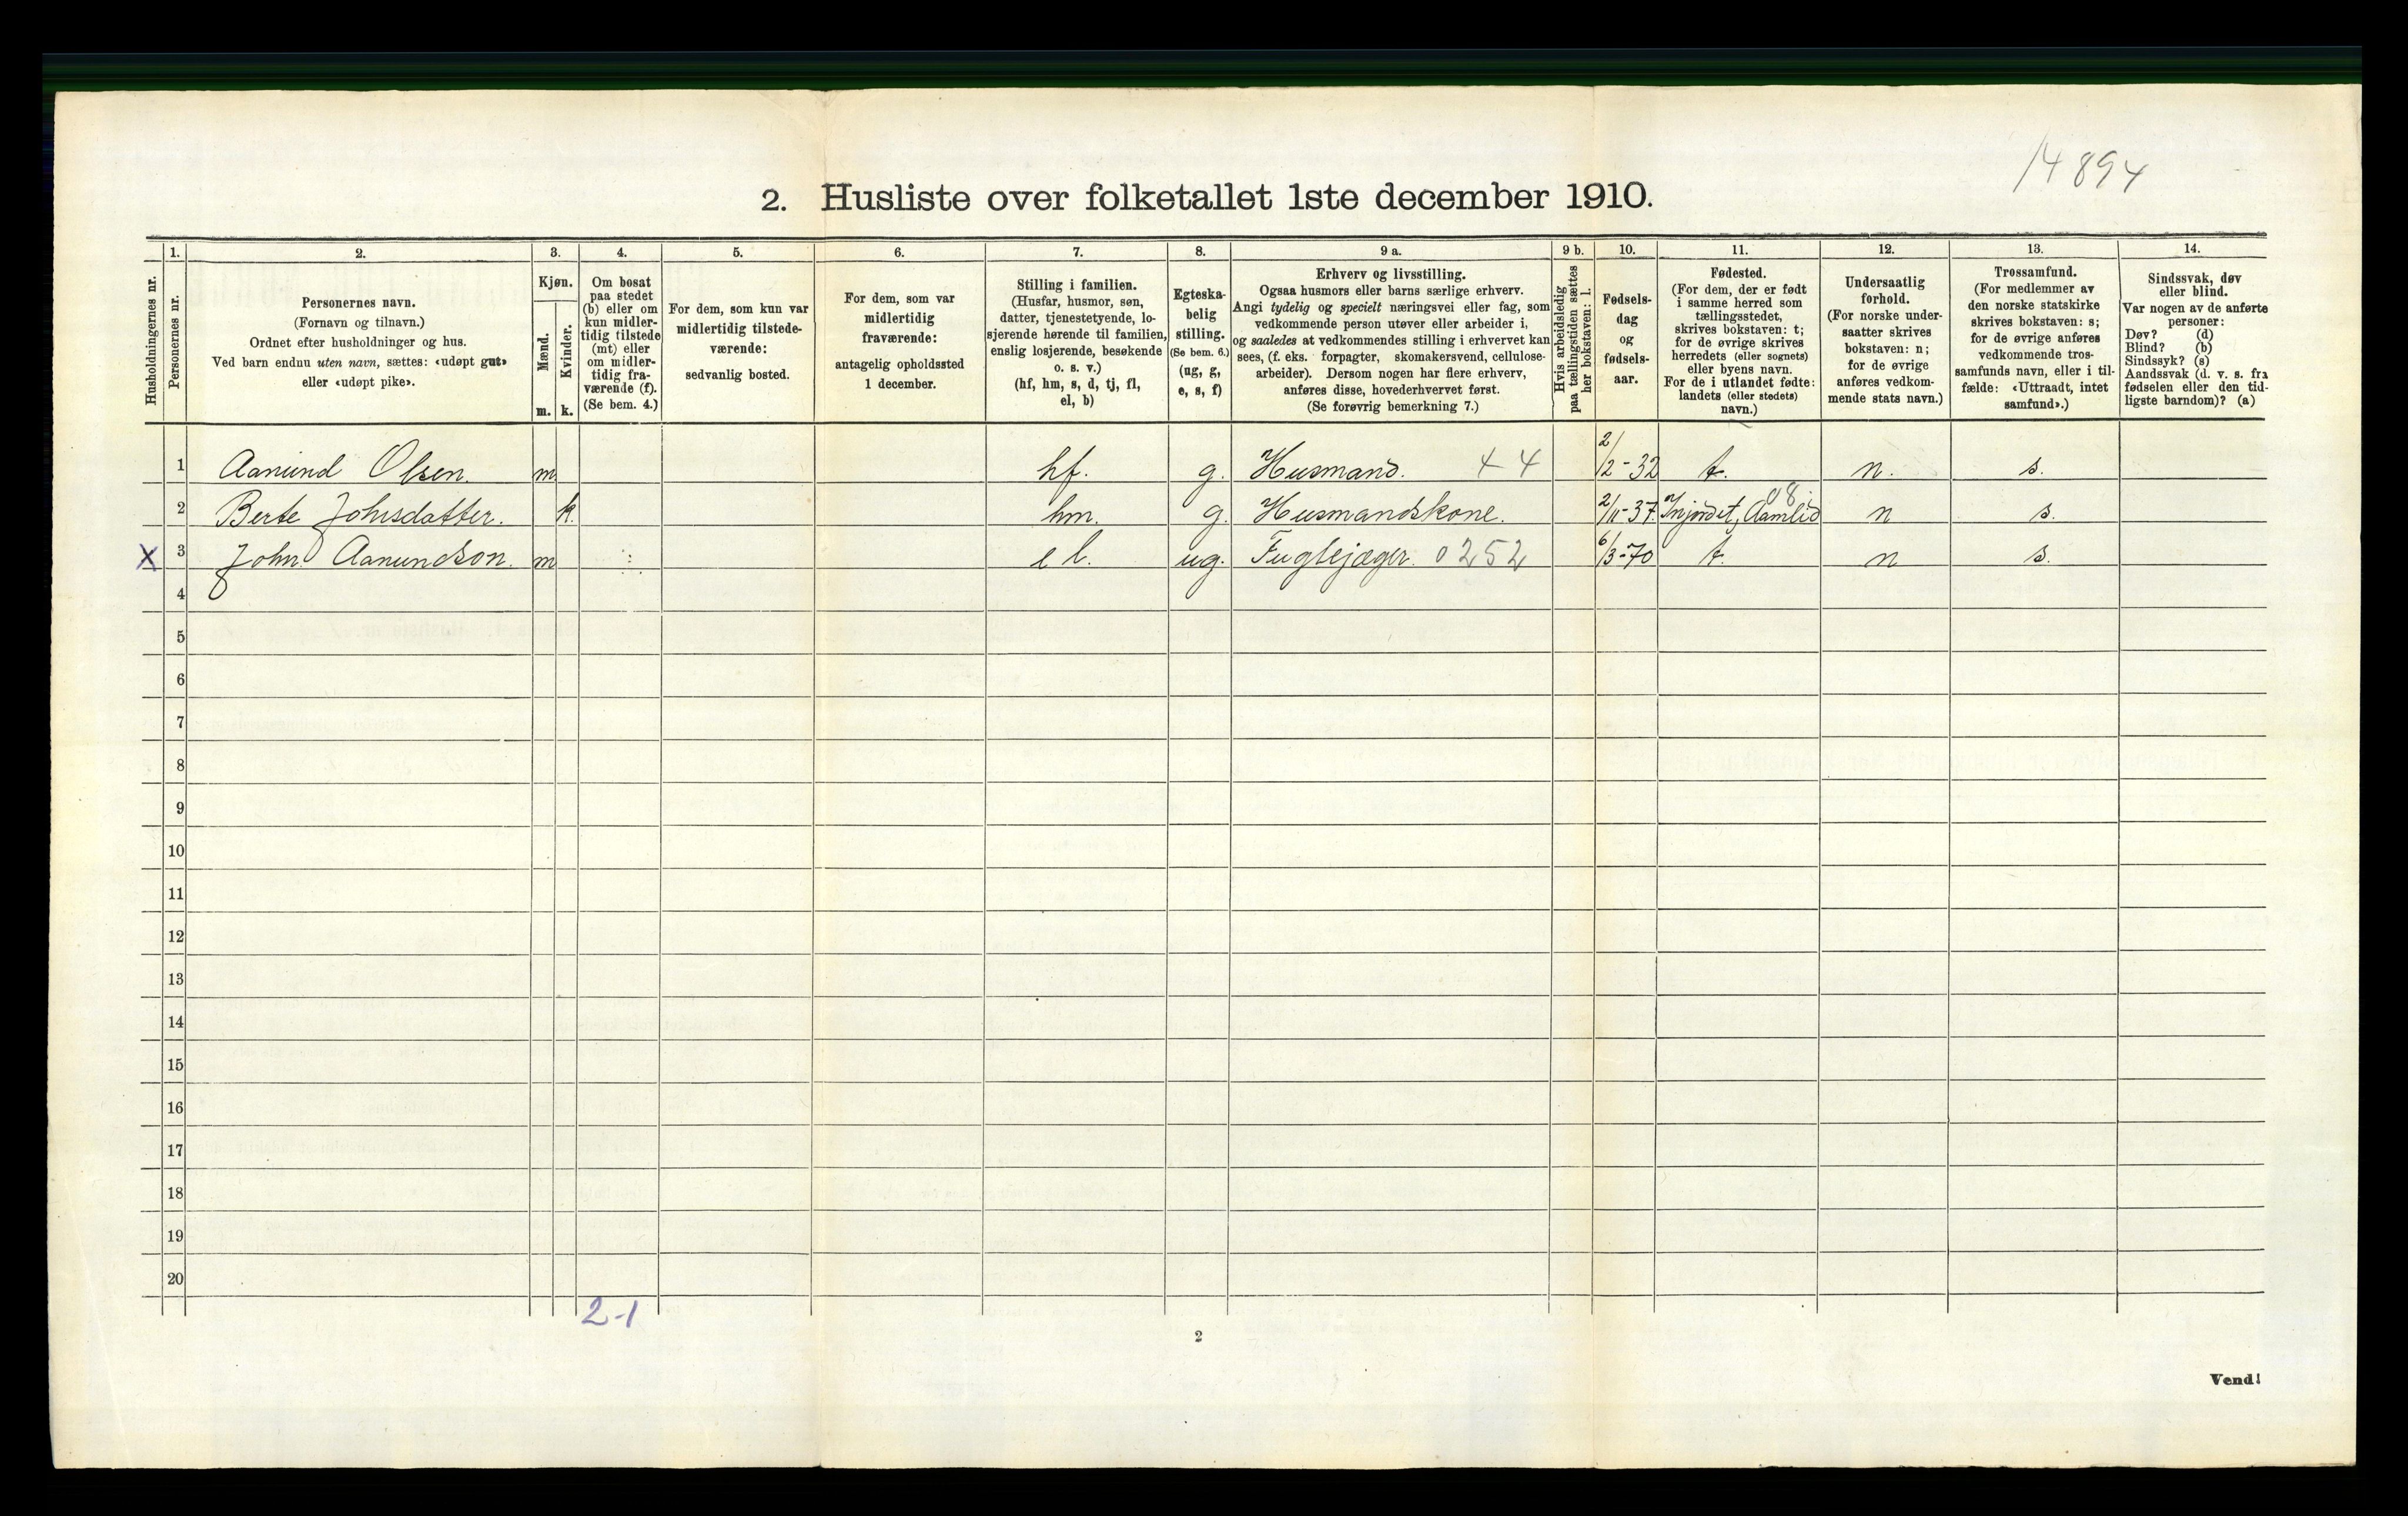 14894
2. Husliste over folketallet 1ste december 1910.
Husholdningernes nr.
1.
Personernes nr.
2.
Personernes navn.
(Fornavn og tilnavn.)
Ordnet efter husholdninger og hus.
Ved barn endnu uten navn, sættes: «udøpt gut»
eller «udøpt pike».
3.
Kjøn.
Mænd.
Kvinder.
m. k.
4.
Om bosat
paa stedet
(b) eller om
kun midler-
tidig tilstede
(mt) eller
om midler-
tidig fra-
værende (f).
(Se bem. 4.)
5.
For dem, som kun var
midlertidig tilstede-
værende:
sedvanlig bosted.
6.
For dem, som var
midlertidig
fraværende:
antagelig opholdssted
1 december.
7.
Stilling i familien.
(Husfar, husmor, søn,
datter, tjenestetyende, lo-
sjerende hørende til familien,
enslig losjerende, besøkende
o. s. v.)
(hf, hm, s, d, tj, fl,
el, b)
8.
Egteska-
belig
stilling.
(Se bem. 6.)
(ug, g,
e, s, f)
9 a.
Erhverv og livsstilling.
Ogsaa husmors eller barns særlige erhverv.
Angi tydelig og specielt næringsvei eller fag, som
vedkommende person utøver eller arbeider i,
og saaledes at vedkommendes stilling i erhvervet kan
sees, (f. eks. forpagter, skomakersvend, cellulose-
arbeider). Dersom nogen har flere erhverv,
anføres disse, hovederhvervet først.
(Se forøvrig bemerkning 7.)
9 b.
Hvis arbeidsledig
paa tællingstiden sættes
her bokstaven: l.
10.
Fødsels-
dag
og
fødsels-
aar.
11.
Fødested.
(For dem, der er født
i samme herred som
tællingsstedet,
skrives bokstaven: t;
for de øvrige skrives
herredets (eller sognets)
eller byens navn.
For de i utlandet fødte:
landets (eller stedets)
navn.)
12.
Undersaatlig
forhold.
(For norske under-
saatter skrives
bokstaven: n;
for de øvrige
anføres vedkom-
mende stats navn.)
13.
Trossamfund.
(For medlemmer av
den norske statskirke
skrives bokstaven: s;
for de øvrige anføres
vedkommende tros-
samfunds navn, eller i til-
fælde: «Uttraadt, intet
samfund».)
14.
Sindssvak, døv
eller blind.
Var nogen av de anførte
personer:
Døv? (d)
Blind? (b)
Sindssyk? (s)
Aandssvak (d. v. s. fra
fødselen eller den tid-
ligste barndom)? (a)
1 Aanund Olsen. m hf. g. Husmand. 44 2/2-32 t. n. s.
2 Berte Johnsdatter. k. hm. g. Husmandskone. 2/11-37 Aamlid n s.
X 3 John Aanundson. m el. ug. Fuglejæger. 0252 6/3-70 t. n s.
4
5
6
7
8
9
10
11
12
13
14
15
16
17
18
19
20
2-1
2
Vend!